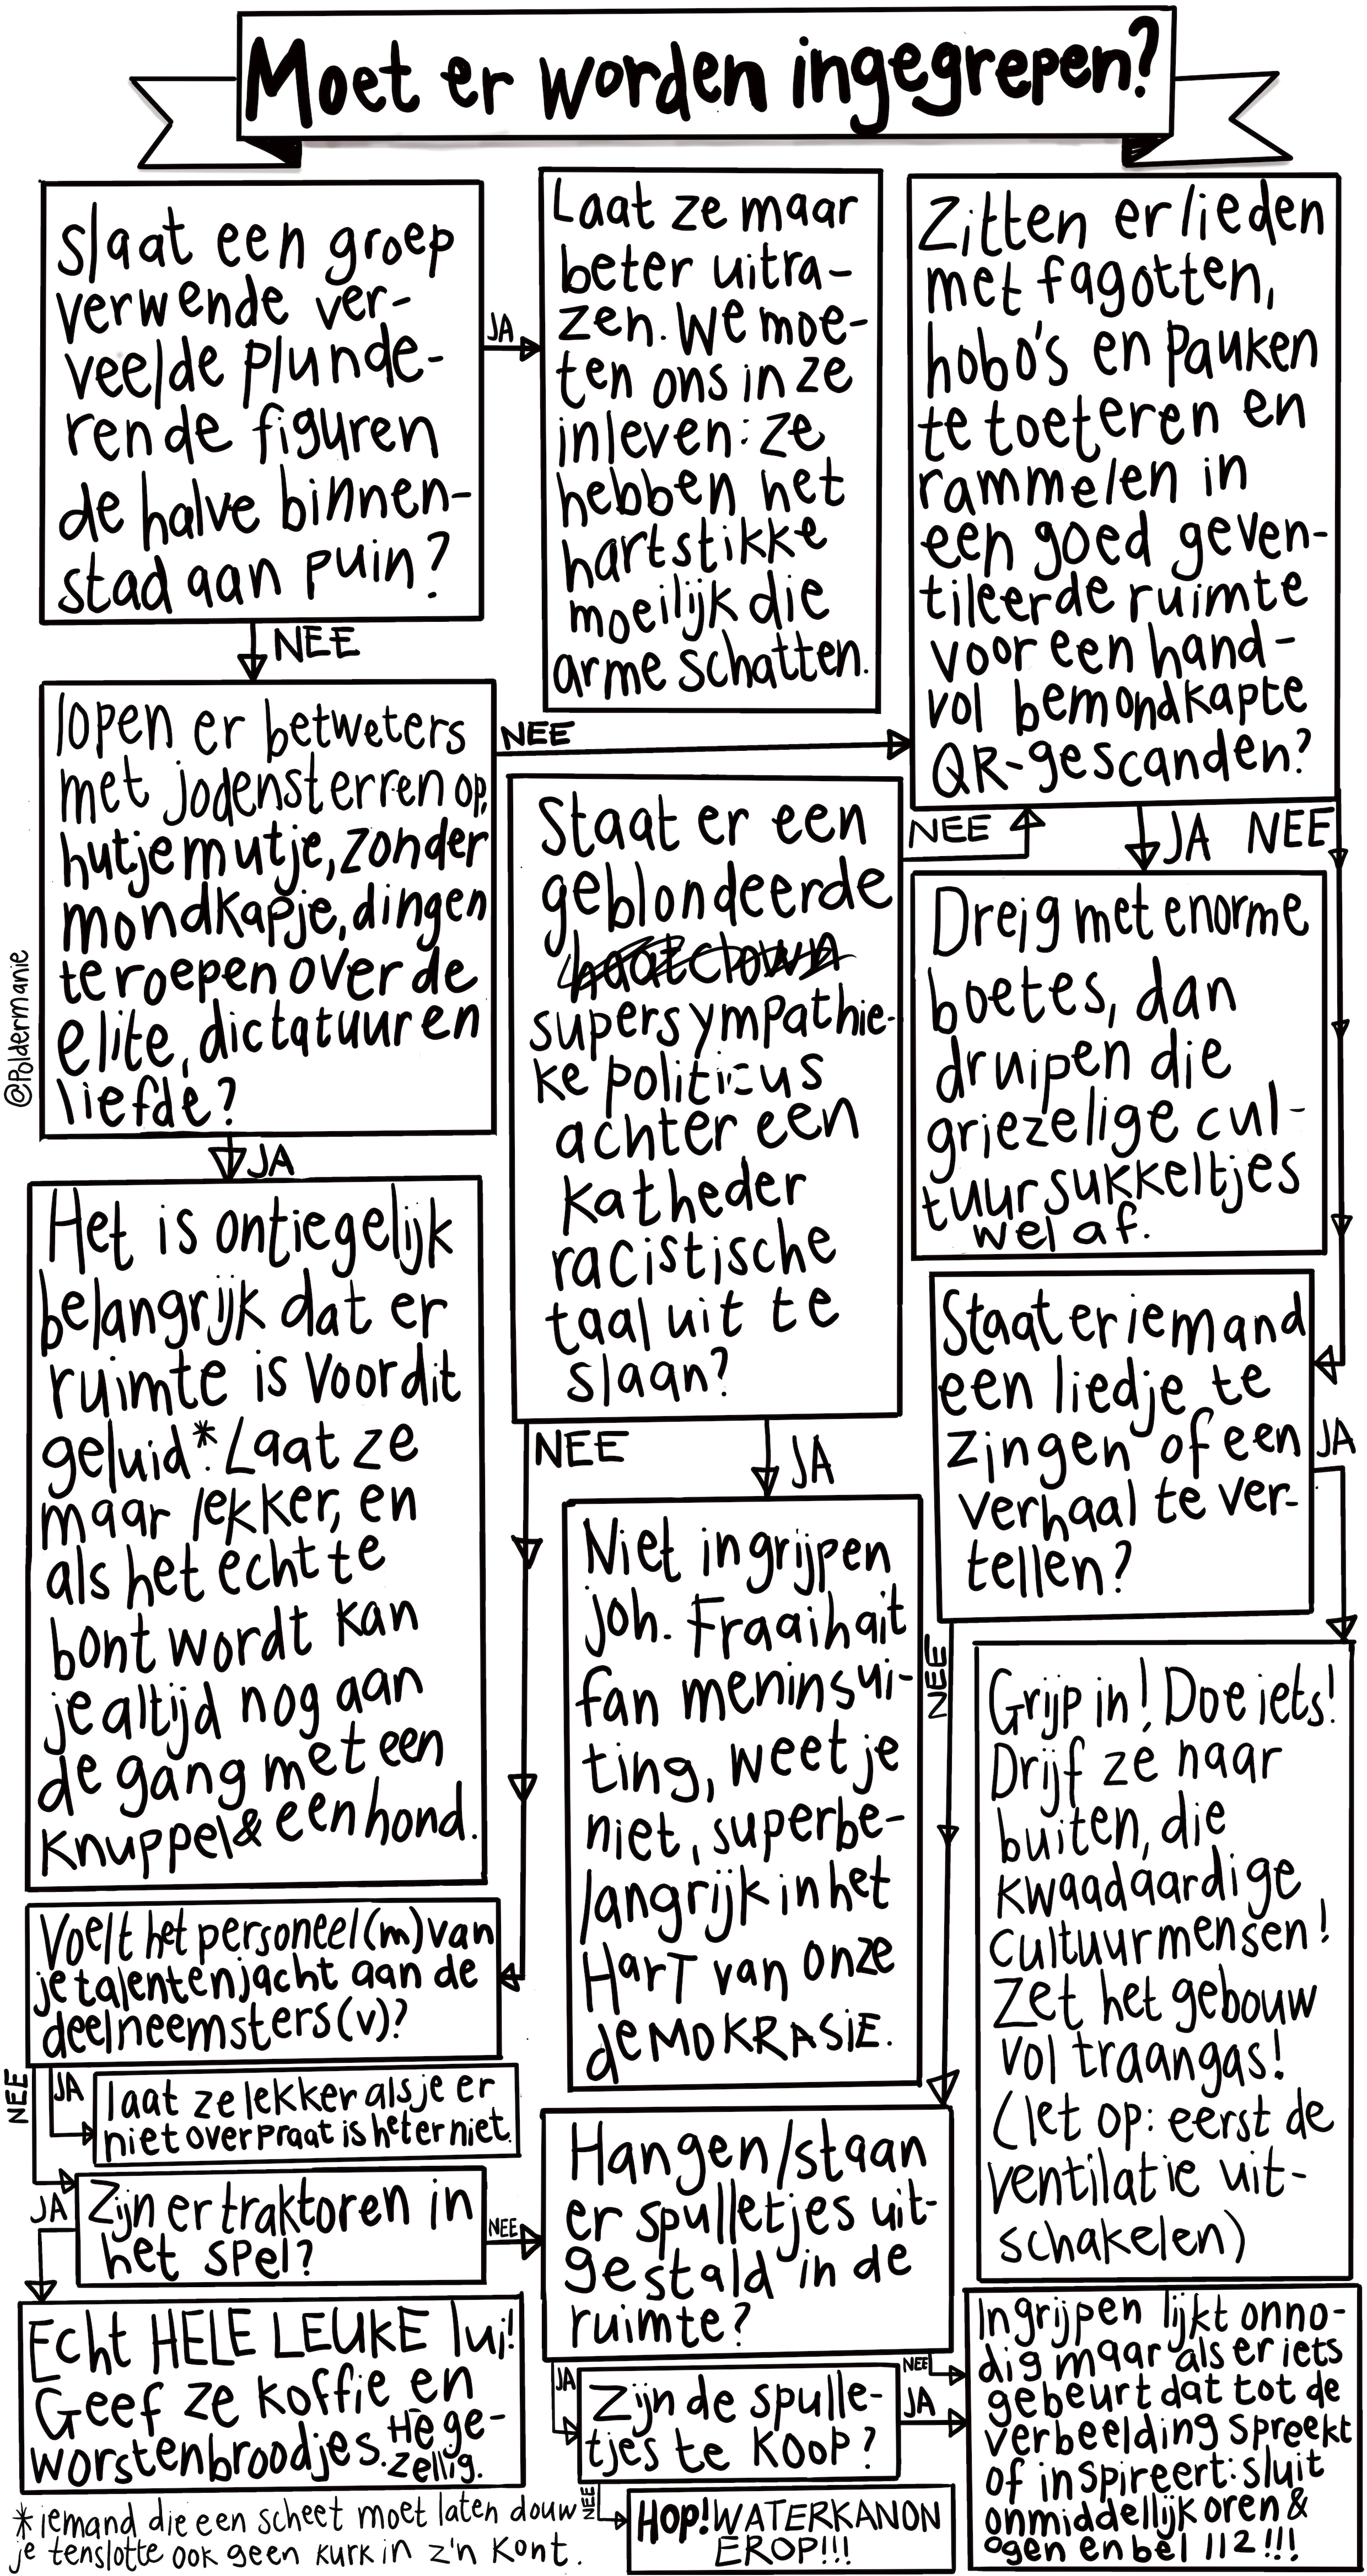 Moet er worden ingegrepen?
slaat een groep
verwende ver-
veelde plunde-
rende figuren
de halve binnen-
stad aan puin?
JA
Laat ze maar
beter uitra-
zen. We moe-
ten ons in ze
inleven: ze
hebben het
hartstikke
moeilijk die
arme schatten.
NEE
lopen er betweters
met jodensterren op,
hutjemutje, zonder
mondkapje, dingen
te roepen over de
elite, dictatuur en
liefde?
NEE
Zitten er lieden
met fagotten,
hobo's en pauken
te toeteren en
rammelen in
een goed geven-
tileerde ruimte
voor een hand-
vol bemondkapte
QR-gescanden?
JA NEE
Dreig met enorme
boetes, dan
druipen die
griezelige cul-
tuursukkeltjes
wel af.
@Poldermanie
JA
Het is ontiegelijk
belangrijk dat er
ruimte is voor dit
geluid*. Laat ze
maar lekker, en
als het echt te
bont wordt kan
je altijd nog aan
de gang met een
knuppel & een hond.
Staat er een
geblondeerde
haatclown
supersympathie-
ke politicus
achter een
katheder
racistische
taal uit te
slaan?
NEE
NEE
JA
Niet ingrijpen
joh. Fraaihait
fan meninsui-
ting, weet je
niet, superbe-
langrijk in het
HarT van onze
deMOKRASiE.
Staat er iemand
een liedje te
zingen of een
verhaal te ver-
tellen?
JA
Grijp in! Doe iets!
Drijf ze naar
buiten, die
kwaadaardige
cultuurmensen!
Zet het gebouw
vol traangas!
(let op: eerst de
ventilatie uit-
schakelen)
NEE
Voelt het personeel (m) van
je talentenjacht aan de
deelneemsters (v)?
JA
laat ze lekker als je er
niet over praat is het er niet.
NEE
Zijn er traktoren in
het spel?
JA
Echt HELE LEUKE lui!
Geef ze koffie en
worstenbroodjes. Hè ge-
zellig.
NEE
Hangen/staan
er spulletjes uit-
gestald in de
ruimte?
JA
Zijn de spulle-
tjes te koop?
NEE
JA
Ingrijpen lijkt onno-
dig maar als er iets
gebeurt dat tot de
verbeelding spreekt
of inspireert: sluit
onmiddellijk oren &
ogen en bel 112!!!
NEE
HOP! WATERKANON
EROP!!!
*iemand die een scheet moet laten douw
je tenslotte ook geen kurk in z'n kont.